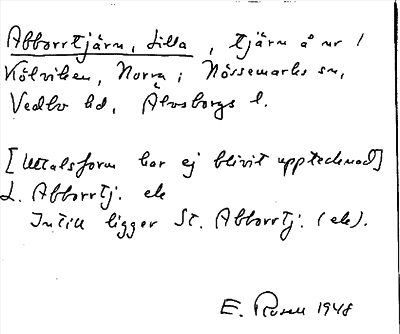 Abborrtjärn, Lilla, tjärn å nr 1
Kölviken, Norra i Nössemarks sn,
Vedbo hd, Älvsborgs l.
[Uttalsform har ej blivit upptecknad]
L. Abborrtj. ek
Intill ligger St. Abborrtj. (ek).
E. Rosell 1948